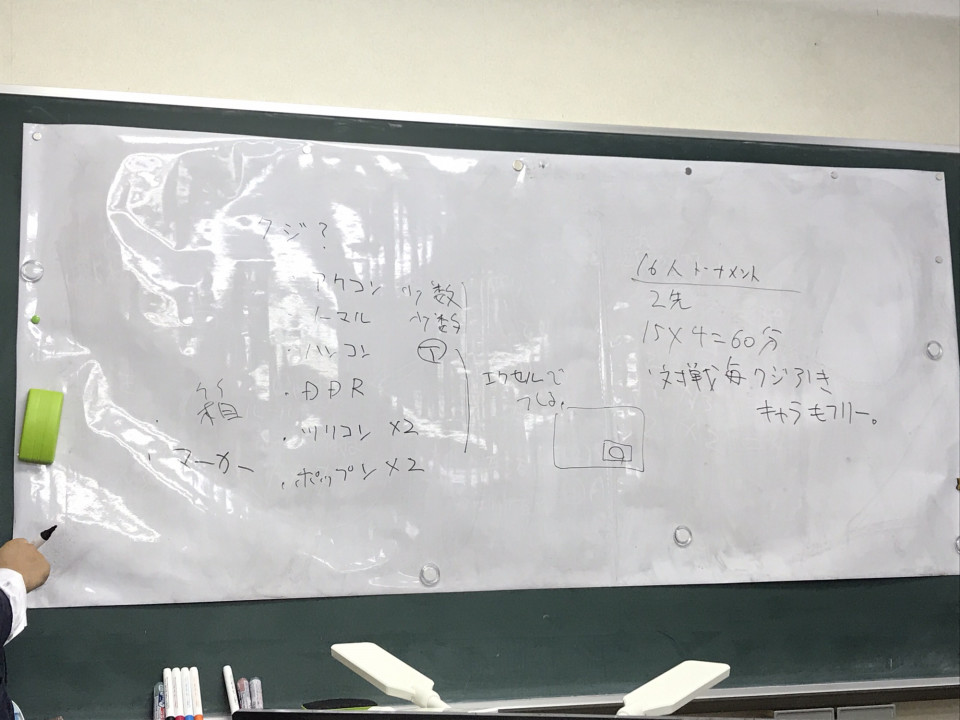 クジ?
アケコン 少数
ノーマル 少数
・ハンコン
・DDR
・ツリコン ×2
・ポップン ×2
・箱
・マーカー
エクセルで
16人トーナメント
2先
15×4=60分
・対戦毎クジ引き
キャラもフリー。